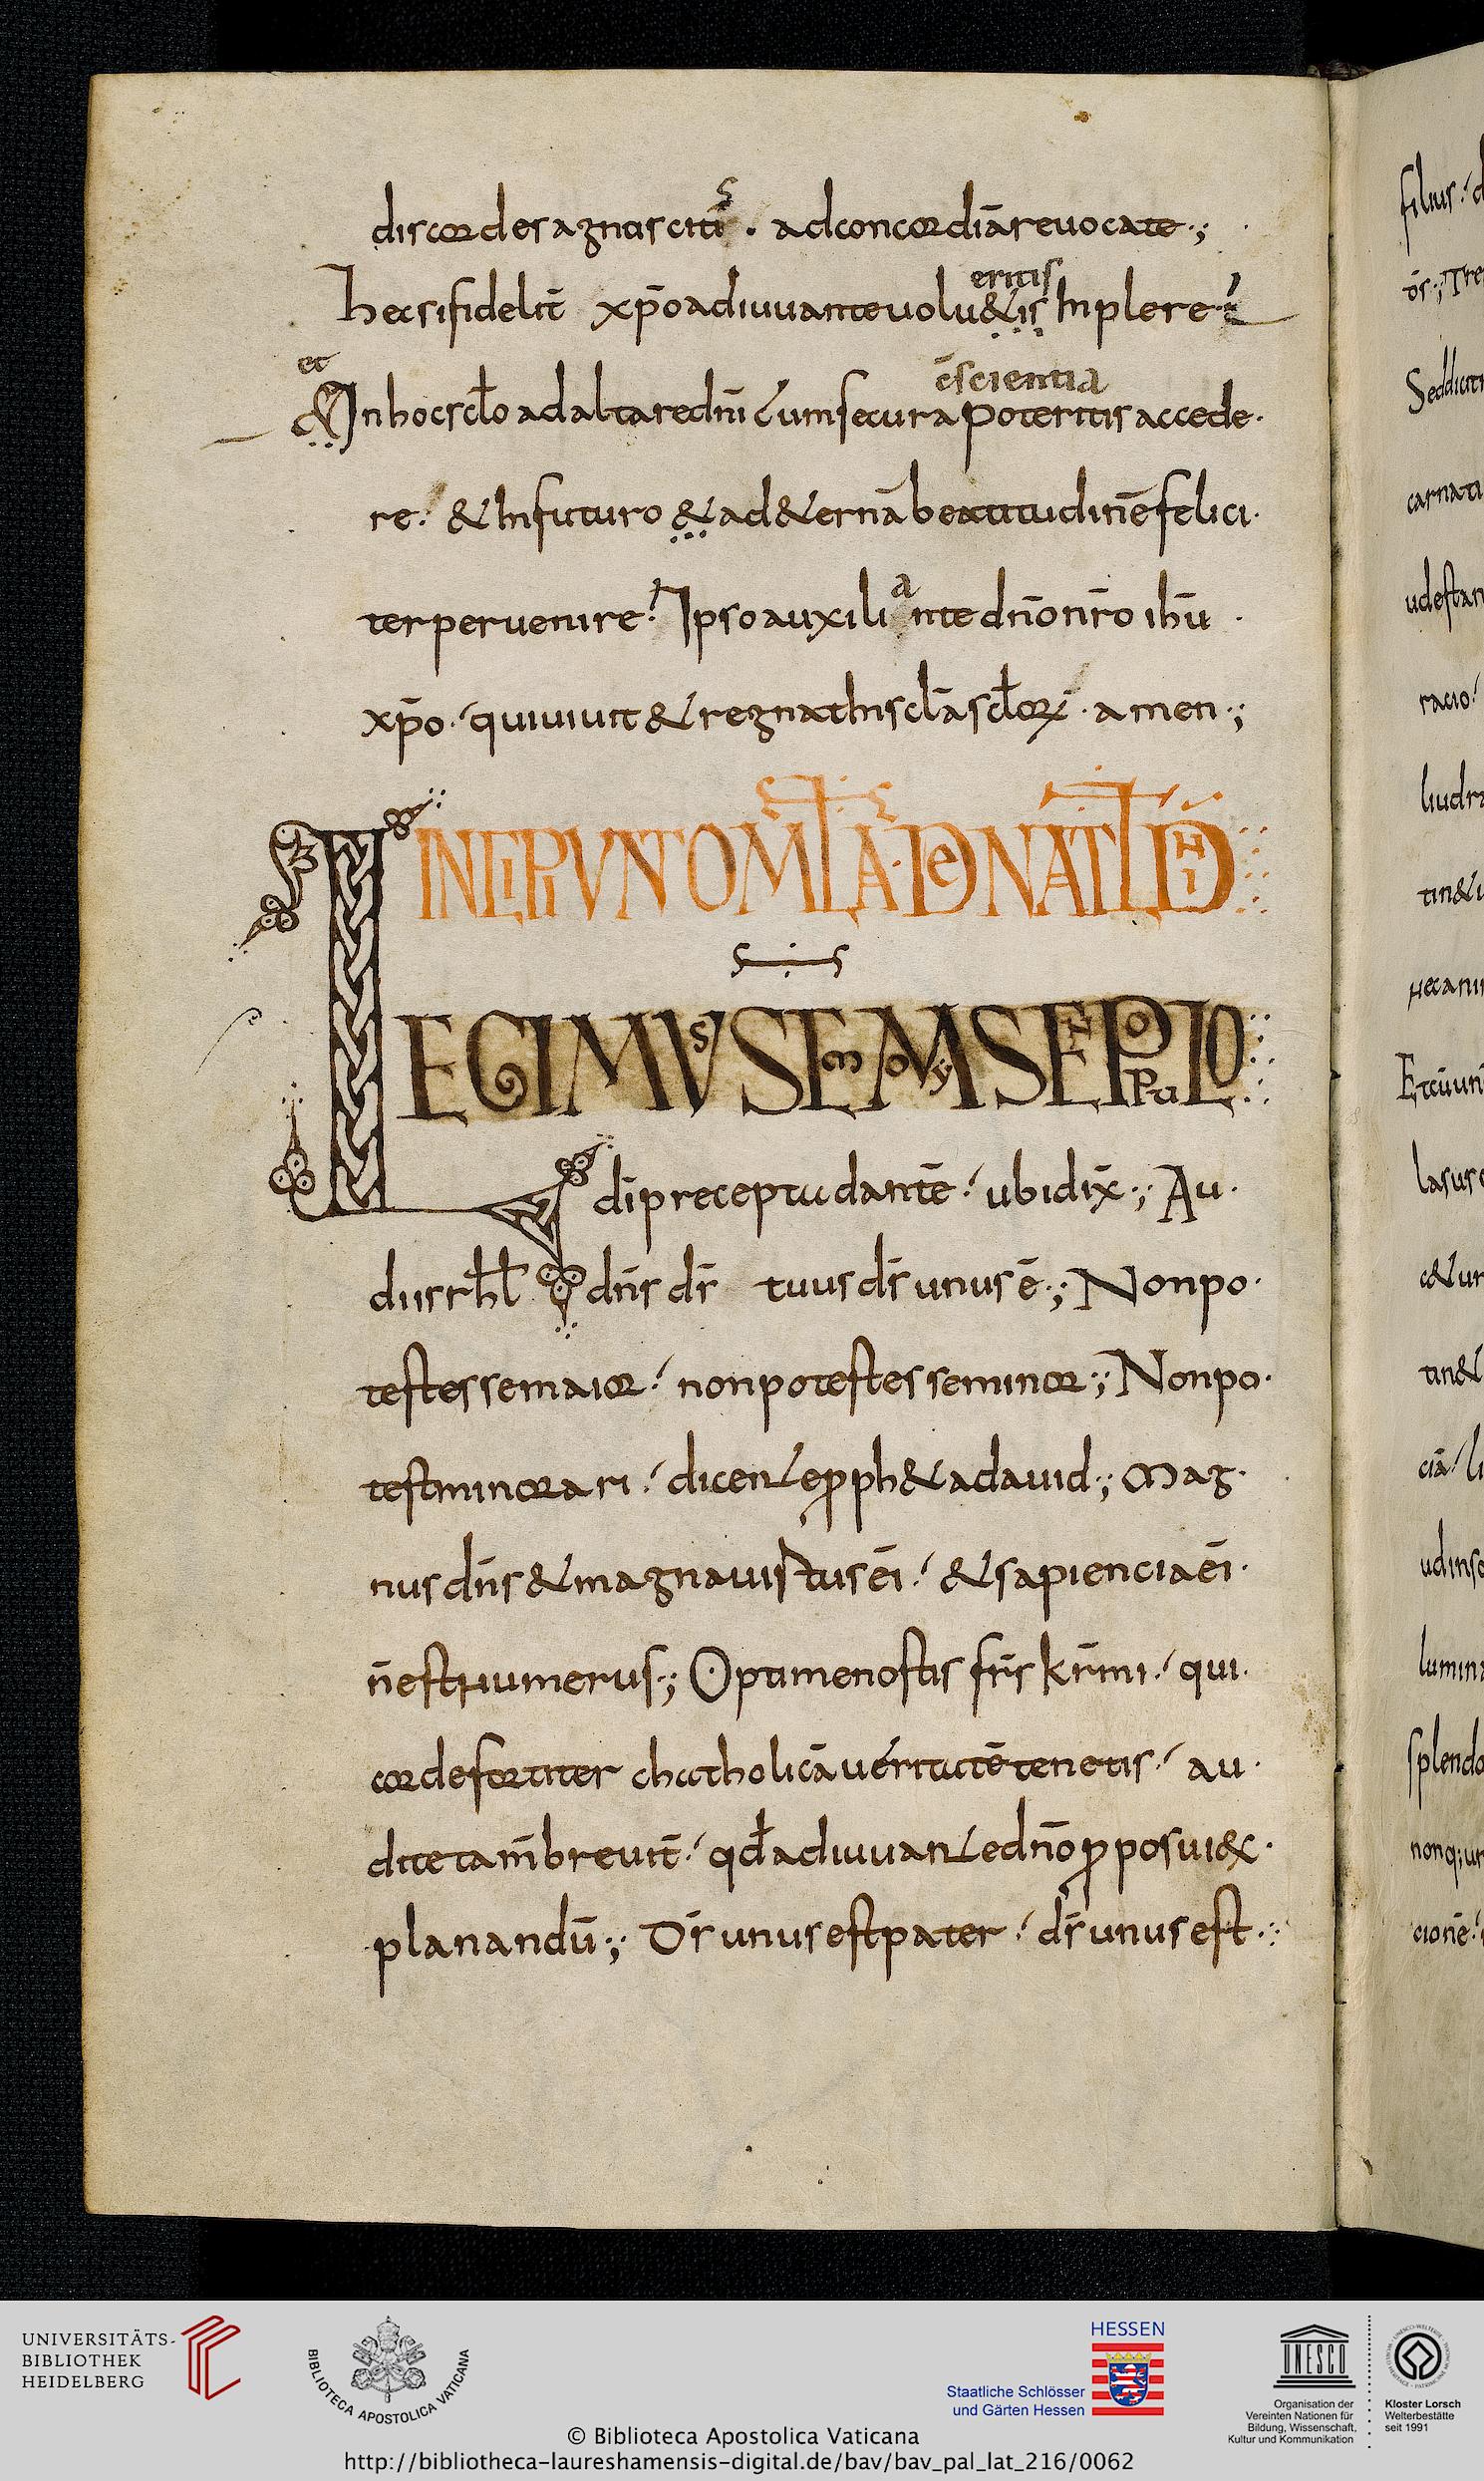 discordes agnoscitis . ad concordiā reuocate ·;
eritis
hec si fideliť xp̄o adiuuante uolu&is Inplere·
et
c̄scientia
& In hoc scl̄o ad altare dn̄i cum secura poteritis accede·
re· & In futuro & ad &ernā beatitudinē felici·
ter peruenire· Ipso auxiliante dn̄o nr̄o ih̄u ·
xp̄o · qui uiuit & regnat In scl̄a scl̄orꝝ · amen ·;
INCIPIUNT OML̄A · DE NAT̄L DN̄I
LEGIMUS SC̄M MOYSEN POPULO
dī precepta dantē · ubi dix̄ ·; Au·
di isrhl̄ dn̄s ds̄ tuus ds̄ unus ē ·; Non po·
test esse maior · non potest esse minor ·; Non po·
test minorari · dicente ꝓph&a dauid ·; Mag·
nus dn̄s & magna uirtus ēi · & sapiencia ēi ·
n̄ est numerus ·; Optime nostis fr̄s kr̄mi · qui·
corde fortiter chatholicā ueritatē tenetis · au·
dite tam̄ breuit̄ · qđ adiuuante dn̄o ꝓposui ex·
planandū ·; Ds̄ unus est pater · ds̄ unus est ·
filius
ōs ·; Tre
carnati
racio
splendo
cionē
UNIVERSITÄTS-
BIBLIOTHEK
HEIDELBERG
BIBLIOTECA APOSTOLICA VATICANA
HESSEN
Staatliche Schlösser
und Gärten Hessen
UNESCO
Organisation der
Vereinten Nationen für
Bildung, Wissenschaft,
Kultur und Kommunikation
Kloster Lorsch
Welterbestätte
seit 1991
© Biblioteca Apostolica Vaticana
http://bibliotheca-laureshamensis-digital.de/bav/bav_pal_lat_216/0062